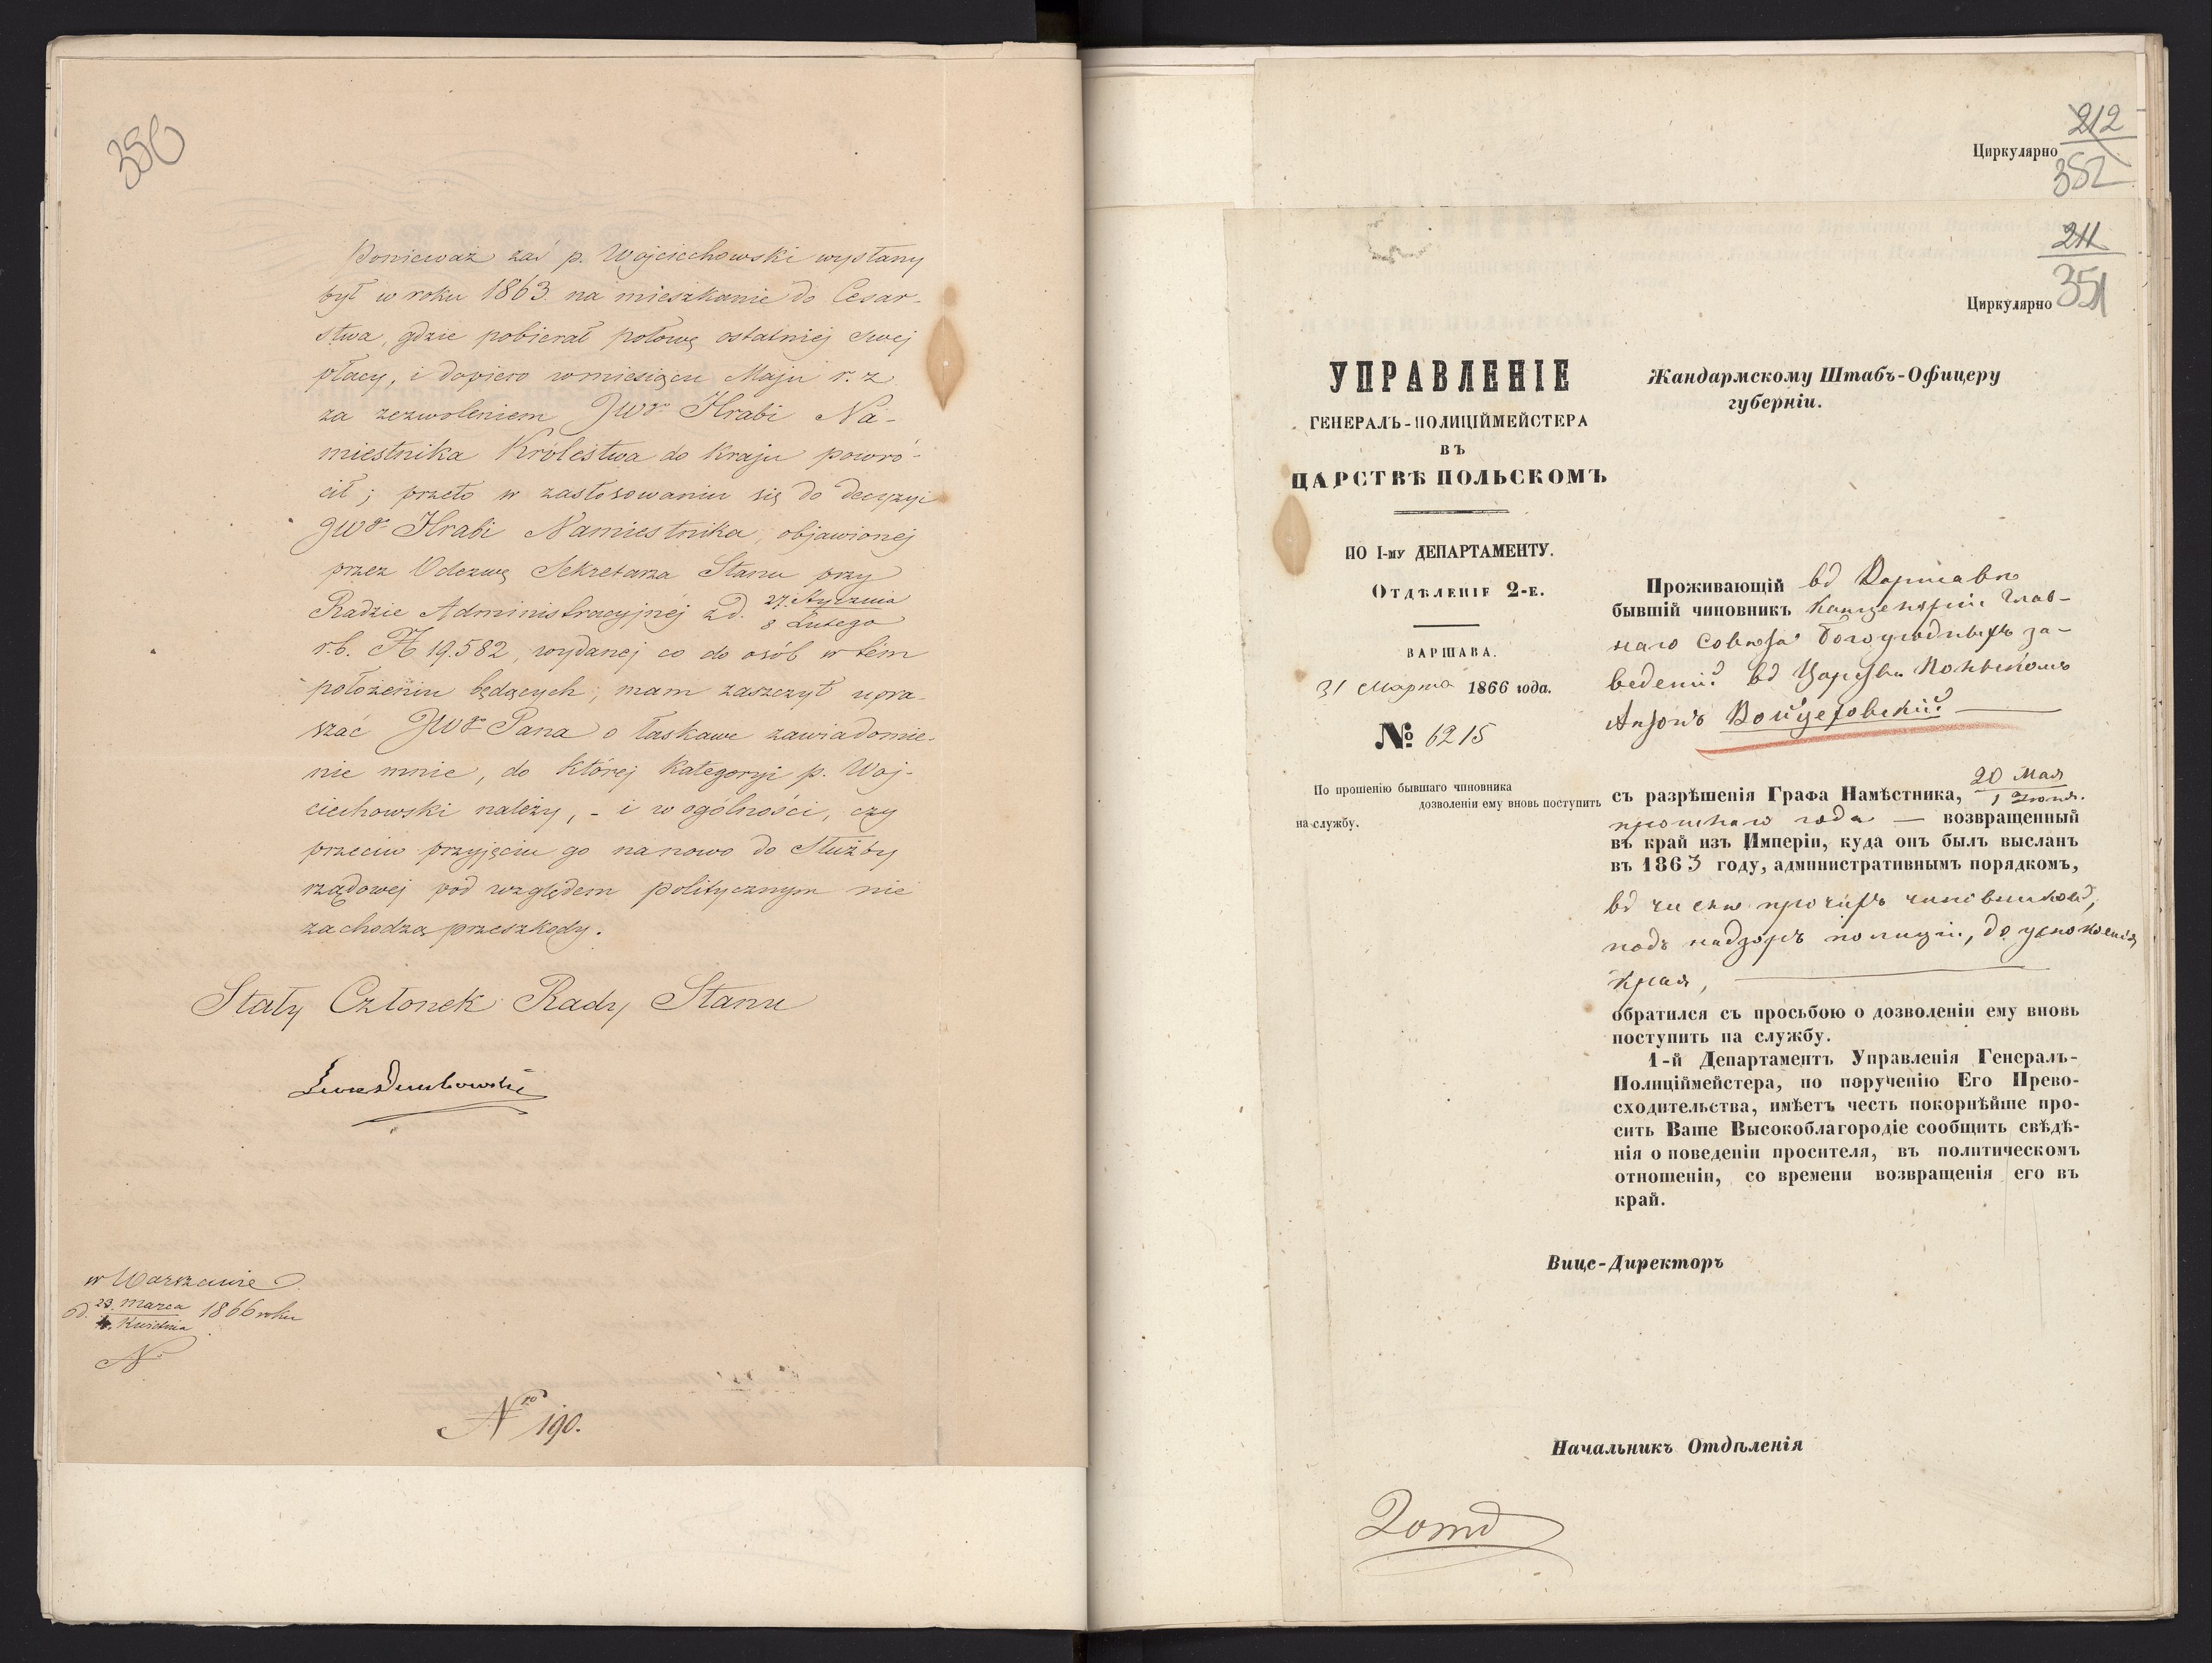 350
Ponieważ zaś p. Wojciechowski wysłany
był w roku 1863 na mieszkanie do Cesar-
stwa, gdzie pobierał połowę ostatniéj swej
płacy, i dopiero w miesiącu Maju r. z.
za zezwoleniem JWgo Hrabi Na-
miestnika Królestwa do kraju powró-
cił; przeto w zastosowaniu się do decyzyi
JWgo Hrabi Namiestnika, objawionéj
przez Odezwę Sekretarza Stanu przy
Radzie Administracyjnéj z d. 27. Stycznia
8 Lutego
r.b. № 19.582, wydanéj co do osób w tém
położeniu będących, mam zaszczyt upra-
szać JWgo Pana o łaskawe zawiadomie-
nie mnie, do któréj kategoryi p. Woj-
ciechowski należy, - i w ogólności, czy
przeciw przyjęciu go na nowo do Służby
rządowej pod względem politycznym nie
zachodzą przeszkody.
Stały Członek Rady Stanu
w Warszawie
d. 23. Marca 1866 roku
4. Kwietnia
N
Nro 190.
212
Циркулярно
352
211
Циркулярно 351
УПРАВЛЕНІЕ
ГЕНЕРАЛЪ-ПОЛИЦІЙМЕЙСТЕРА
ВЪ
ЦАРСТВѢ ПОЛЬСКОМЪ
ПО I-му ДЕПАРТАМЕНТУ.
Отдѣленіе 2-е.
ВАРШАВА.
31 Марта 1866 года.
№ 6215
По прошенію бывшаго чиновника
дозволеніи ему вновь поступить
на службу.
Жандармскому Штабъ-Офицеру
губерніи.
Проживающій въ Варшавѣ
бывшій чиновникъ Канцеляріи Глав-
наго Совѣта Богоугодныхъ за-
веденій въ Царствѣ Польскомъ
Антонъ Войцеховскій
съ разрѣшенія Графа Намѣстника, 20 Мая
1 Іюня
прошлаго года — возвращенный
въ край изъ Имперіи, куда онъ былъ высланъ
въ 1863 году, административнымъ порядкомъ,
въ числѣ прочихъ чиновниковъ,
подъ надзоръ полиціи, до успокоенія
края,
обратился съ просьбою о дозволеніи ему вновь
поступить на службу.
1-й Департаментъ Управленія Генералъ-
Полиціймейстера, по порученію Его Прево-
сходительства, имѣетъ честь покорнѣйше про-
сить Ваше Высокоблагородіе сообщить свѣдѣ-
нія о поведеніи просителя, въ политическомъ
отношеніи, со времени возвращенія его въ
край.
Вице-Директоръ
Начальникъ Отдѣленія